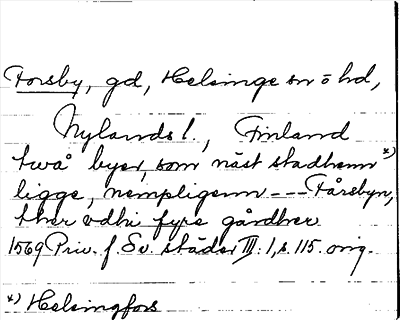 Forsby, gd, Helsinge sn o hd,
Nylands l., Finland
twå byer, som näst stadhenn *)
ligge, nempligenn --- Fårsbyn,
ther vdhi fyre gårdher
1569 Priv. f. Sv. städer III: 1, s. 115. orig.
*) Helsingfors